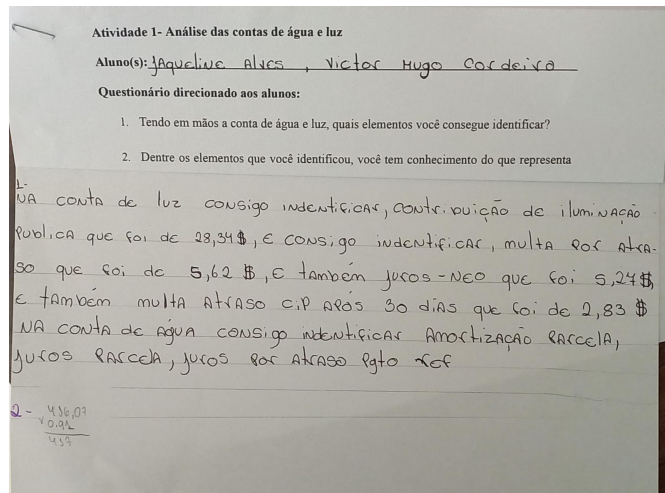 Atividade 1- Análise das contas de água e luz
Aluno(s): Jaqueline Alves, Victor Hugo Cordeiro
Questionário direcionado aos alunos:
1. Tendo em mãos a conta de água e luz, quais elementos você consegue identificar?
2. Dentre os elementos que você identificou, você tem conhecimento do que representa
1-
NA CONTA de luz CONSigo INdeNtificAr, CONtribuição de ilumiNAÇÃO
Publica que foi de 28,34$, E CONSigo iNdeNtificAr, multA POr AtrA-
so que foi de 5,62 $, E tAmbém juros-NEO que foi 5,24$,
E tAmbém multA AtrASO CIP APÓS 30 diAS que foi de 2,83 $
NA CONTA de ÁguA CONSigo iNdeNtificAr AmOrtizAÇÃO PArcelA,
juros PArcelA, juros POr AtrASO Pgto ref
2- 436,07
0.92
437